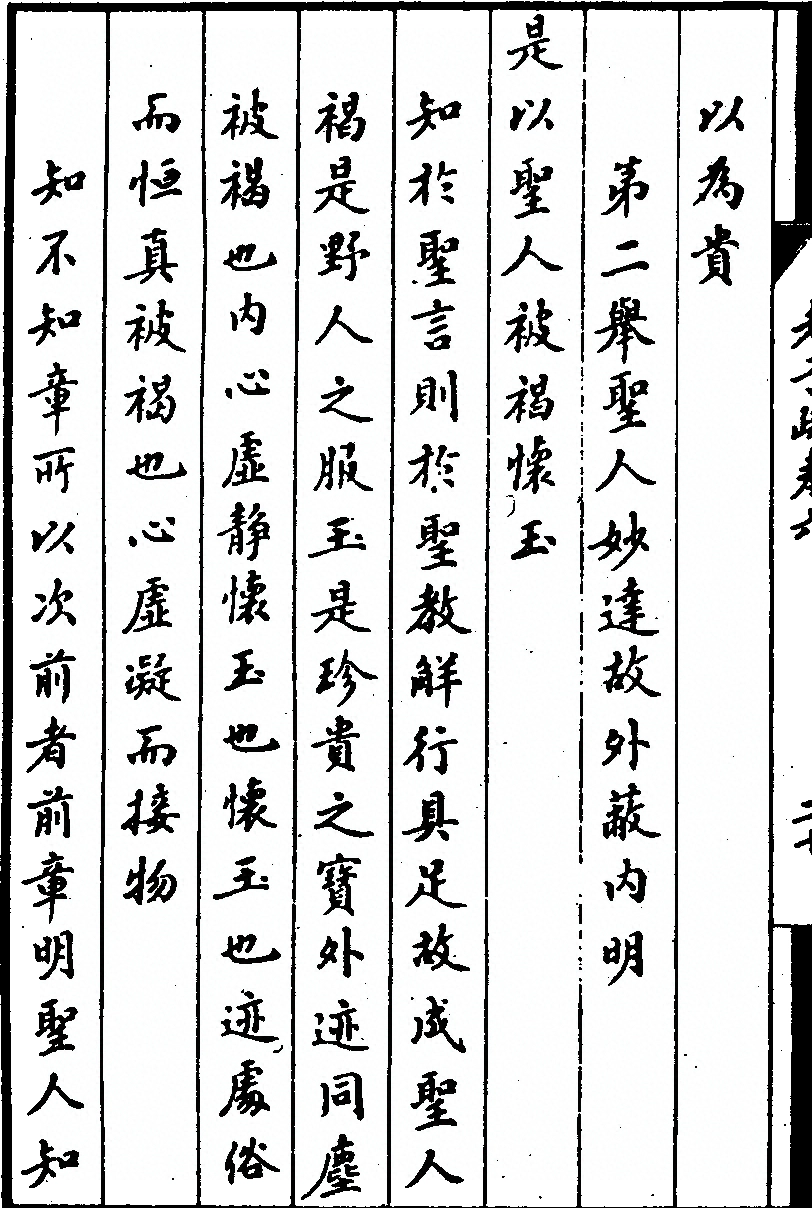 以為貴
第二舉聖人妙達故外蔽内明
是以聖人被褐懷玉
知於聖言則於聖教解行具足故成聖人
褐是野人之服玉是珍貴之寶外迹同塵
被褐也内心虛静懷玉也懷玉也迹處俗
而恒真被褐也心虛凝而接物
知不知章所以次前者前章明聖人知